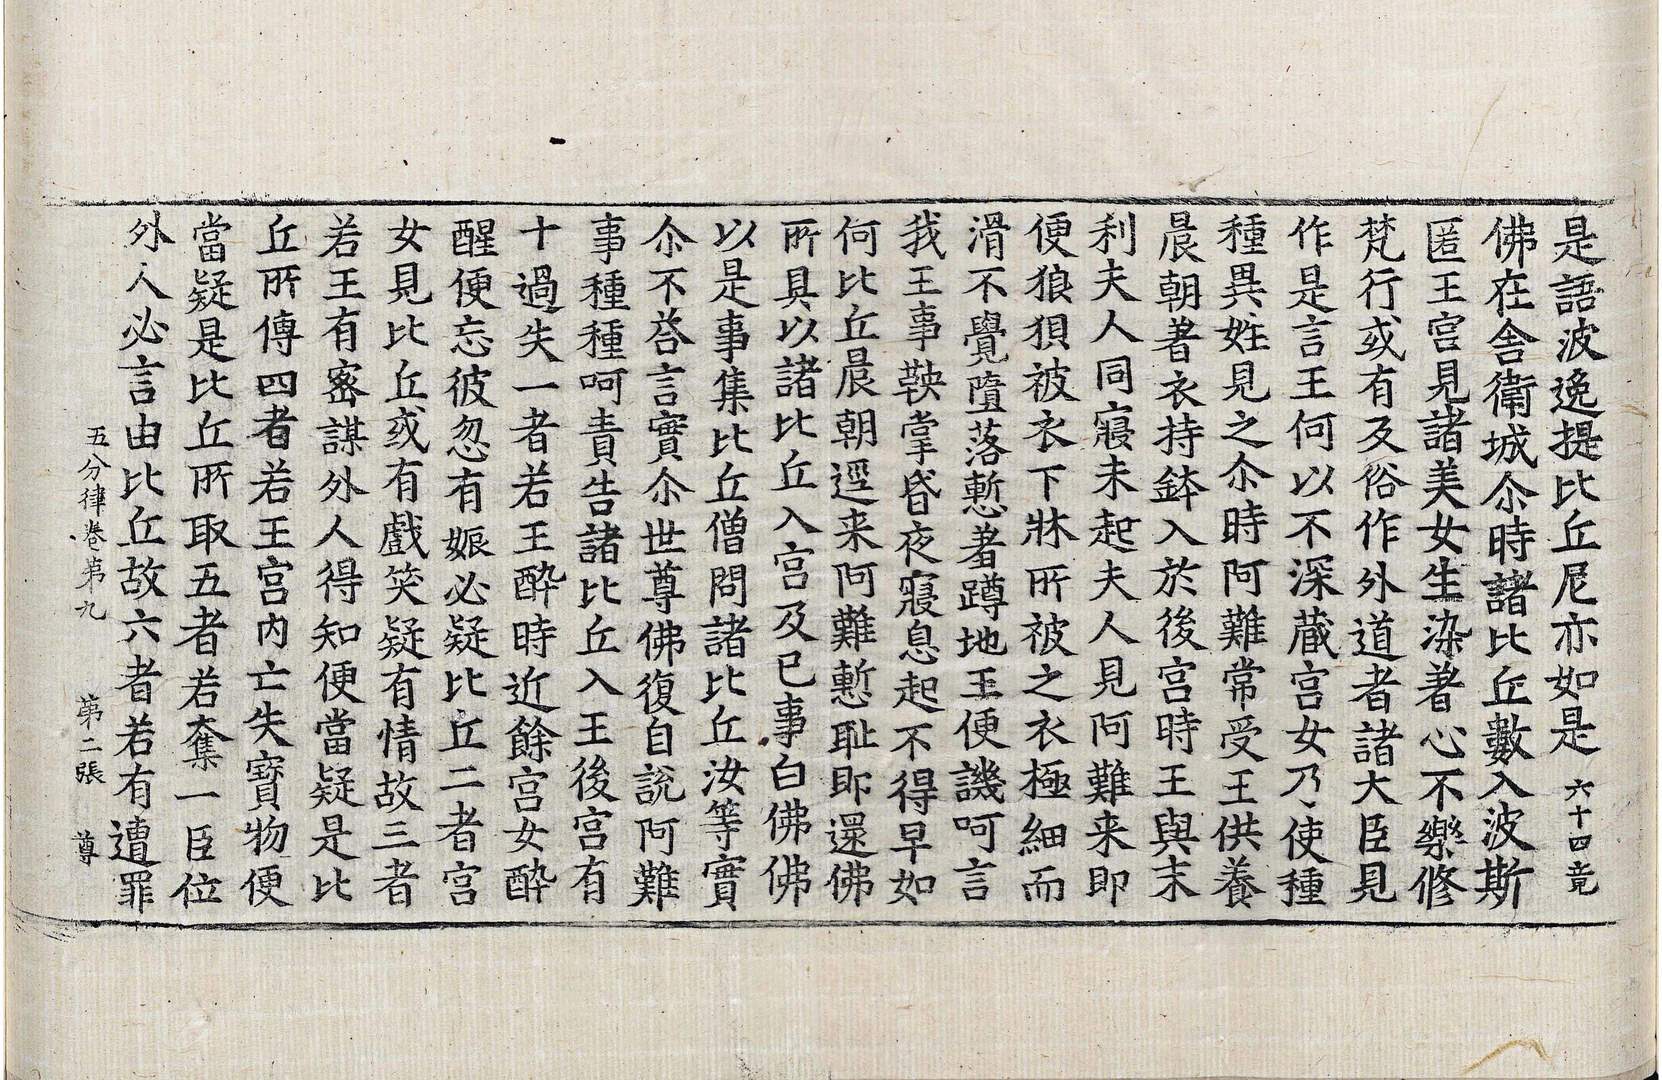 是語波逸提比丘尼亦如是 六十四竟
佛在舎衛城尒時諸比丘數入波斯
匿王宫見諸美女生染著心不樂修
梵行或有及俗作外道者諸大臣見
作是言王何以不深蔵宫女乃使種
種異姓見之尒時阿難常受王供養
晨朝著衣持鉢入於後宫時王與末
利夫人同寢未起夫人見阿難来即
便狼狽被衣下牀所被之衣極細而
滑不覺墮落慙著蹲地王便譏呵言
我王事鞅掌昏夜寢息起不得早如
何比丘晨朝逕来阿難慙耻即還佛
所具以諸比丘入宫及已事白佛佛
以是事集比丘僧問諸比丘汝等實
尒不荅言實尒世尊佛復自説阿難
事種種呵責告諸比丘入王後宫有
十過失一者若王酔時近餘宫女酔
醒便忘彼忽有娠必疑比丘二者宫
女見比丘或有戲笑疑有情故三者
若王有宻謀外人得知便當疑是比
丘所傳四者若王宫内亡失寳物便
當疑是比丘所取五者若奪一臣位
外人必言由比丘故六者若有遭罪
五分律卷第九 第二張 尊